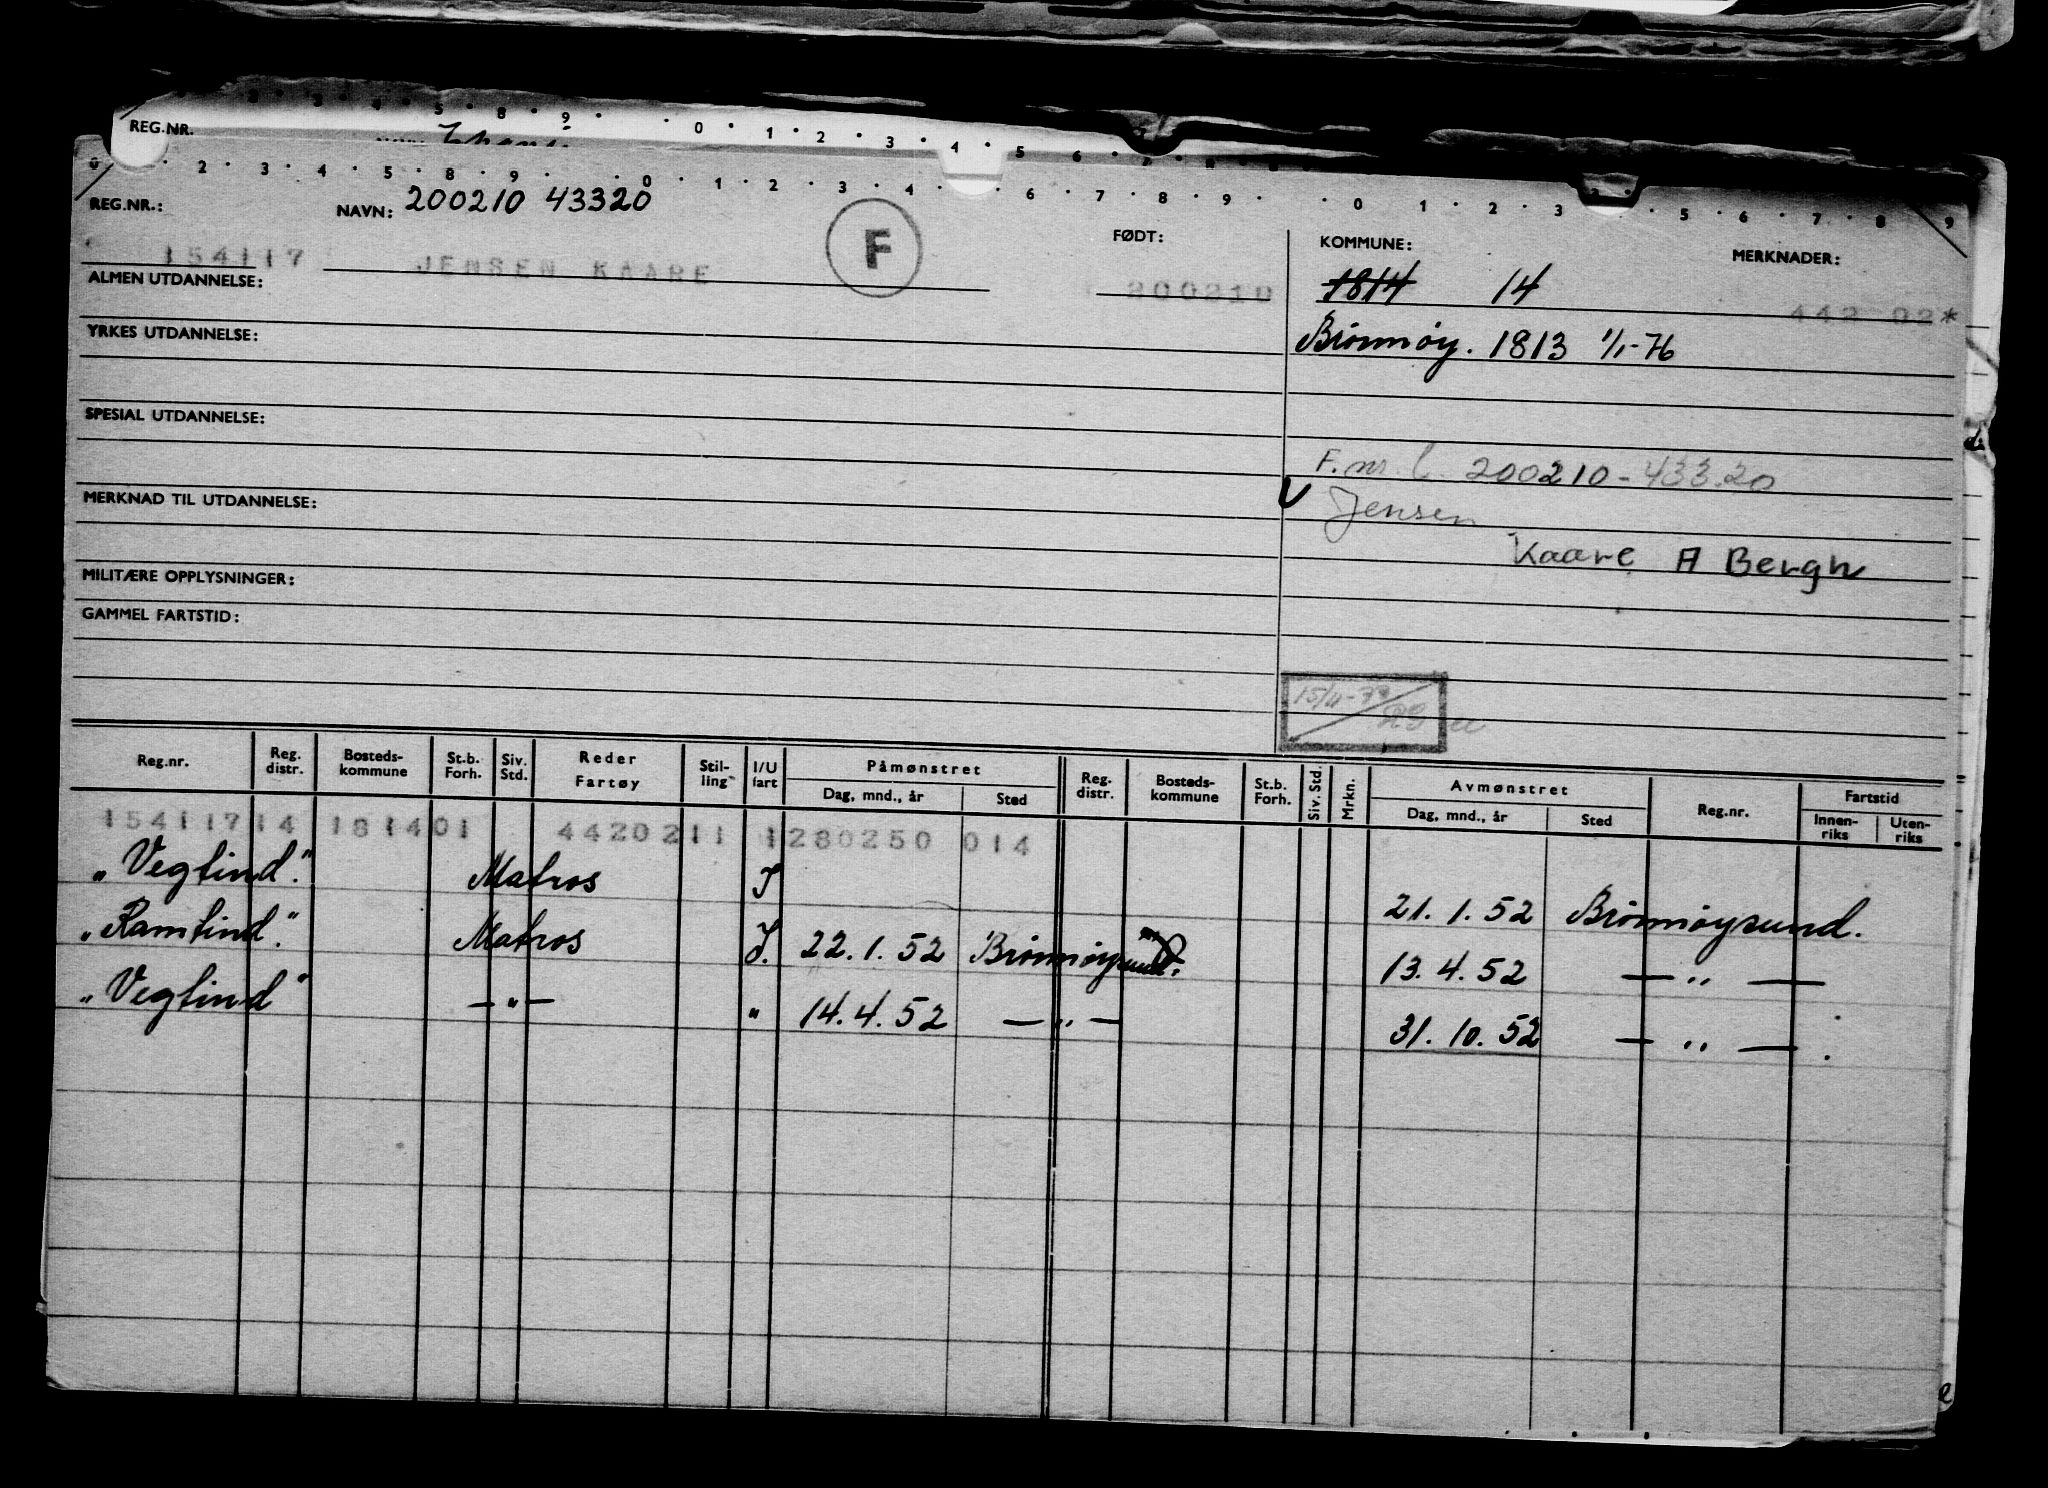 REG.NR.
0 1 2 3 4 5 6 7
0 2 3 4 5 8 9 0 1 2 3 4 6 7 8 9 0 1 2 3 5 6 7 8 9
REG.NR.: NAVN: 200210 43320 FØDT: KOMMUNE: MERKNADER:
154117 JENSEN KAARE F 200210 1814 14 442 02*
ALMEN UTDANNELSE:
YRKES UTDANNELSE: Brønnøy. 1813 1/1-76
SPESIAL UTDANNELSE:
F.nr. 200210-43320
MERKNAD TIL UTDANNELSE: Jensen
Kaare A Bergh
MILITÆRE OPPLYSNINGER:
GAMMEL FARTSTID:
Reg.nr. Reg. distr. Bosteds- kommune St.b. Forh. Siv. Std. Reder Fartøy Stil- ling I/U fart Påmønstret Dag, mnd., år Sted Reg. distr. Bosteds- kommune St.b. Forh. Siv. Std. Mrkn. Avmønstret Dag, mnd., år Sted Reg.nr. Fartstid Innen- riks Uten- riks
154117 14 181401 4420211 1280250 014
"Vegtind". Matros I 21. 1. 52 Brønnøysund.
"Ramtind". Matros I. 22. 1. 52 Brønnøysund. 13. 4. 52 — " —
"Vegtind" — " — " 14. 4. 52 — " — 31. 10. 52 — " — .